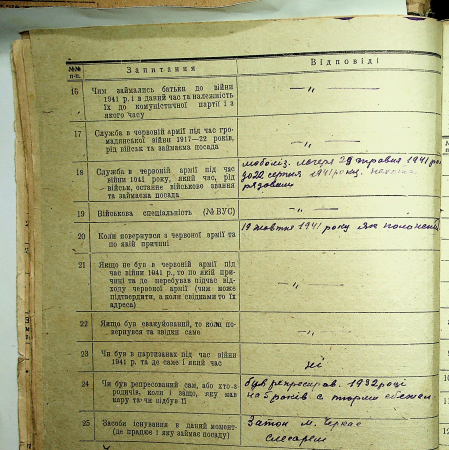 №№ п-п.
Запитання
Відповіді
16 Чим займались батьки до війни
1941 р. і в даний час та належність
їх до комуністичної партії і з
якого часу
— „ —
17 Служба в червоній армії під час гро-
мадянської війни 1917—22 років,
рід військ та займаєма посада
— „ —
18 Служба в червоній армії під час
війни 1941 року, який час, рід
військ, останнє військове звання
та займаєма посада
29 травня 1941
22 серпня 1941 року.
рядовим
19 Військова спеціальність (№ ВУС)
— „ —
20 Коли повернувся з червоної армії та
по якій причині
19 жовтня 1941 року як
21 Якщо не був в червоній армії під
час війни 1941 р., то по якій при-
чині та де перебував підчас від-
ходу червоної армії (чим може
підтвердити, а коли свідками то їх
адреса)
— „ —
22 Якщо був евакуйований, то коли по-
вернувся та звідки саме
— „ —
23 Чи був в партизанах під час війни
1941 р. та де саме і який час
ні
24 Чи був репресирован сам, або хто-з
родичів, коли і защо, яку мав
кару та чи відбув її
був репресиров. 1932 році
на 5 років с
25 Засоби існування в даний момент-
(де працює і яку займає посаду)
Затон м. Черкас
слесарем